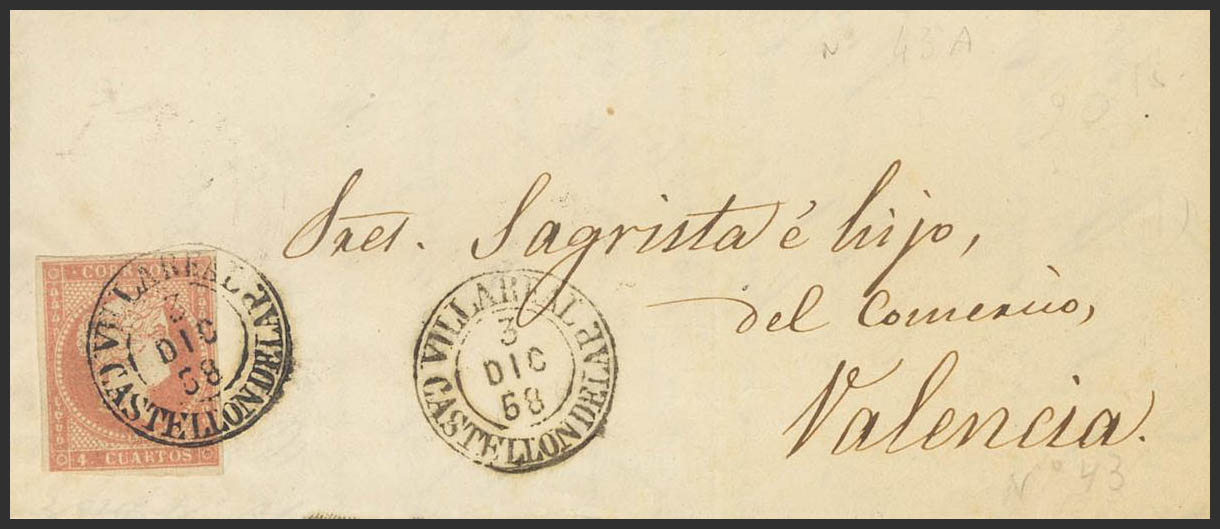 Nº 43A
90
Sres. Sagrista é hijo,
del Comercio,
Valencia.
Nº 43
CORREOS
4. CUARTOS
VILLAREAL
3
DIC
58
CASTELLON DE LA P.
VILLAREAL
3
DIC
58
CASTELLON DE LA P.